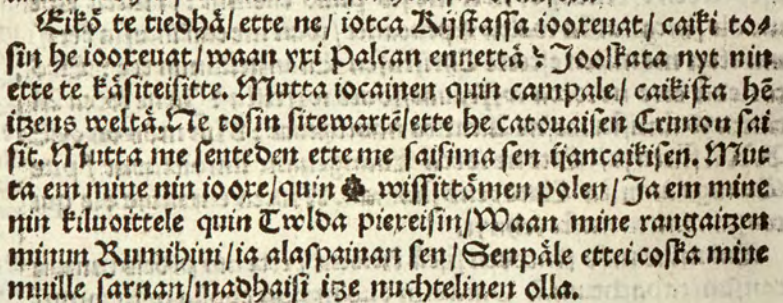 Eikö te tiedhä/ ette ne/ iotca Kijstassa iooxeuat/ caiki to⸗
sin he iooxeuat/ waan yxi Palcan ennettä? Jooskata nyt nin
ette te käsiteisitte. Mutta iocainen quin campale/ caikista hē
itzens weltä. Ne tosin sitewartē/ ette he catouaisen Crunon sai
sit. Mutta me senteden ette me saisima sen ijancaikisen. Mut
ta em mine nin iooxe/ quin wissittömen polen/ Ja em mine
nin kiluoittele quin Twlda piexeisin/ Waan mine rangaitzen
minun Rumihini/ ia alaspainan sen/ Senpäle ettei coska mine
muille sarnan/ madhaisi itze nuchtelinen olla.